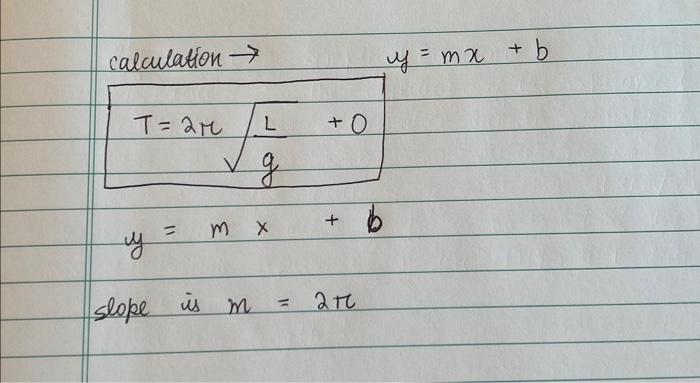 calculation → y = mx + b
T = 2π √(L/g) + 0
y = m x + b
slope is m = 2π